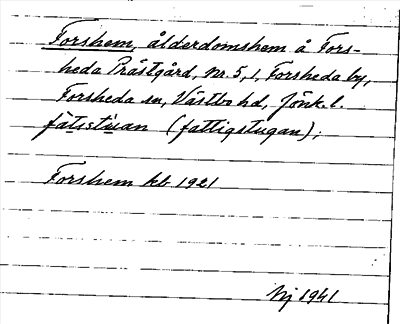 Forshem, ålderdomshem å Fors-
heda Prästgård, Nr. 5, 1, Forsheda by,
Forsheda sn, Västbo hd, Jönk. l.
fatistuan (fattigstugan);
Forshem kb 1921
Nj 1941